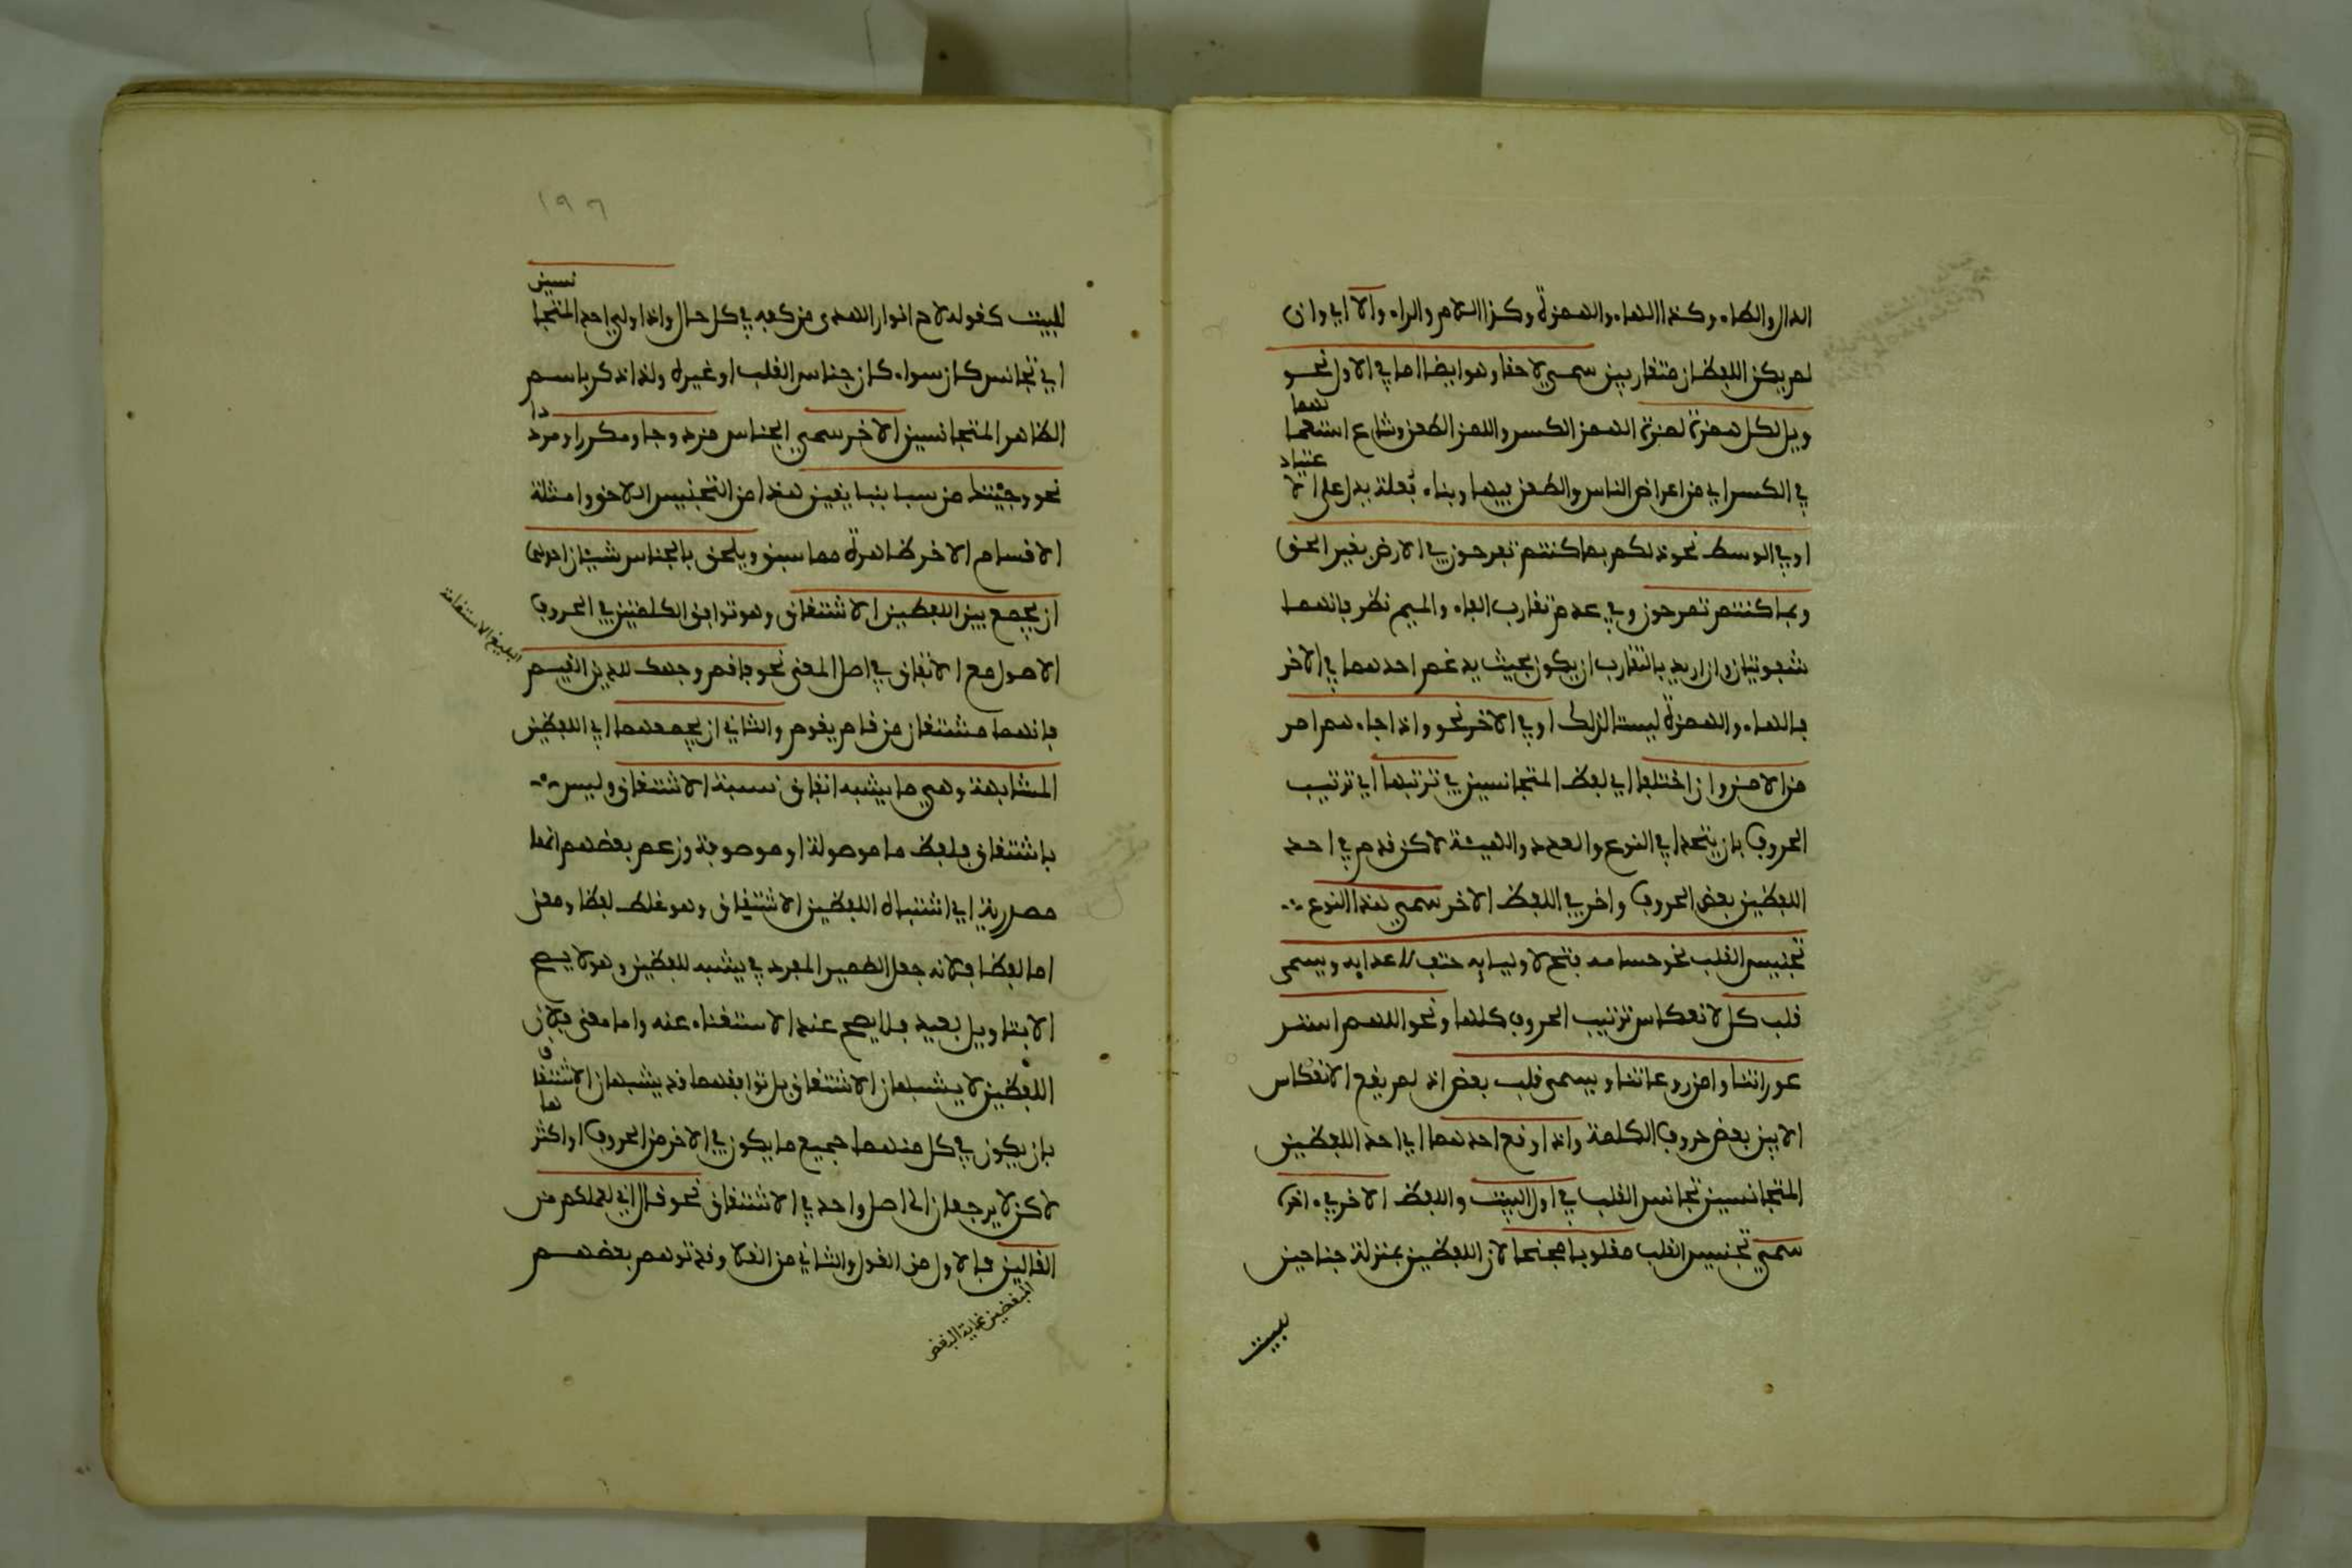 الدال والطاء وكذا الهاء والهمزة وكذا اللام والراء والا اي وان
لم يكن اللفظان متقاربين سمي لاحقا وهو ايضا اما في الاول نحو
ويل لكل همزة لمزة الهمز الكسر واللمز الطعن وشاع استعمالهما
في الكسر اي من اعراض الناس والطعن فيها وبناء فعلة يدل على الاعتياد
او في الوسط نحو ذلكم بما كنتم تفرحون في الارض بغير الحق
وبما كنتم تمرحون وفي عدم تقارب الفاء والميم نظر فانهما
شفويتان وان اريد بالتقارب ان يكون بحيث يدغم احدهما في الاخر
فالهاء والهمزة ليستا كذلك او في الاخر نحو واذا جاءهم امر
من الامن وان اختلفا اي لفظ المتجانسين في ترتيبها اي ترتيب
الحروف بان يتحدا في النوع والعدد والهيئة لاكن قدم في احد
اللفظين بعض الحروف واخر في اللفظ الاخر سمي هذا النوع
تجنيس القلب نحو حسامه فتح لاوليايه حتف لاعدايه ويسمى
قلب كل لانعكاس ترتيب الحروف كلها ونحو اللهم استر
عوراتنا وامن روعاتنا ويسمى قلب بعض اذ لم يقع الانعكاس
الا بين بعض حروف الكلمة واذا وقع احدهما اي احد اللفظين
المتجانسين تجانس القلب في اول البيت واللفظ الاخر في ءاخره
سمي تجنيس القلب مقلوبا مجنحا لان اللفظين بمنزلة جناحين
للبيت
١٩٦
للبيت كقوله لاح انوار الهدى من كفه في كل حال واذا ولي احد المتجانسين
اي تجانس كان سواء كان جناس القلب او غيره ولذا ذكر باسم
الظاهر المتجانسين الاخر سمي الجناس مزدوجا ومكررا ومرددا
نحو وجيتك من سبا بنبا يقين هذا من التجنيس اللاحق وامثلة
الاقسام الاخر ظاهرة مما سبق ويلحق بالجناس شيئان احدهما
ان يجمع بين اللفظين الاشتقاق وهو توافق الكلمتين في الحروف
الاصول مع الاتفاق في اصل المعنى نحو فاقم وجهك للدين القيم
البليغ الاستقامة
فانهما مشتقان من قام يقوم والثاني ان يجمعهما اي اللفظين
المشابهة وهي ما يشبه اتفاق نسبة الاشتقاق وليس
باشتقاق فلفظ ما موصولة او موصوفة وزعم بعضهم انها
مصدرية اي اشتباه اللفظين الاشتقاق وهو غلط لفظا ومعنى
اما لفظا فلانه جعل الضمير المفرد في يشبه للفظين وهو لا يصح
الا بتاويل بعيد فلا يصح عند الاستغناء عنه واما معنى فلان
اللفظين لا يشبهان الاشتقاق بل توافقهما قد يشبهان الاشتقاق
بان يكون في كل منهما جميع ما يكون في الاخر من الحروف او اكثرها
لاكن لا يرجعان الى اصل واحد في الاشتقاق نحو قال اني لعملكم من
القالين فالاول من القول والثاني من القلا وقد توهم بعضهم
المبغضين غاية البغض